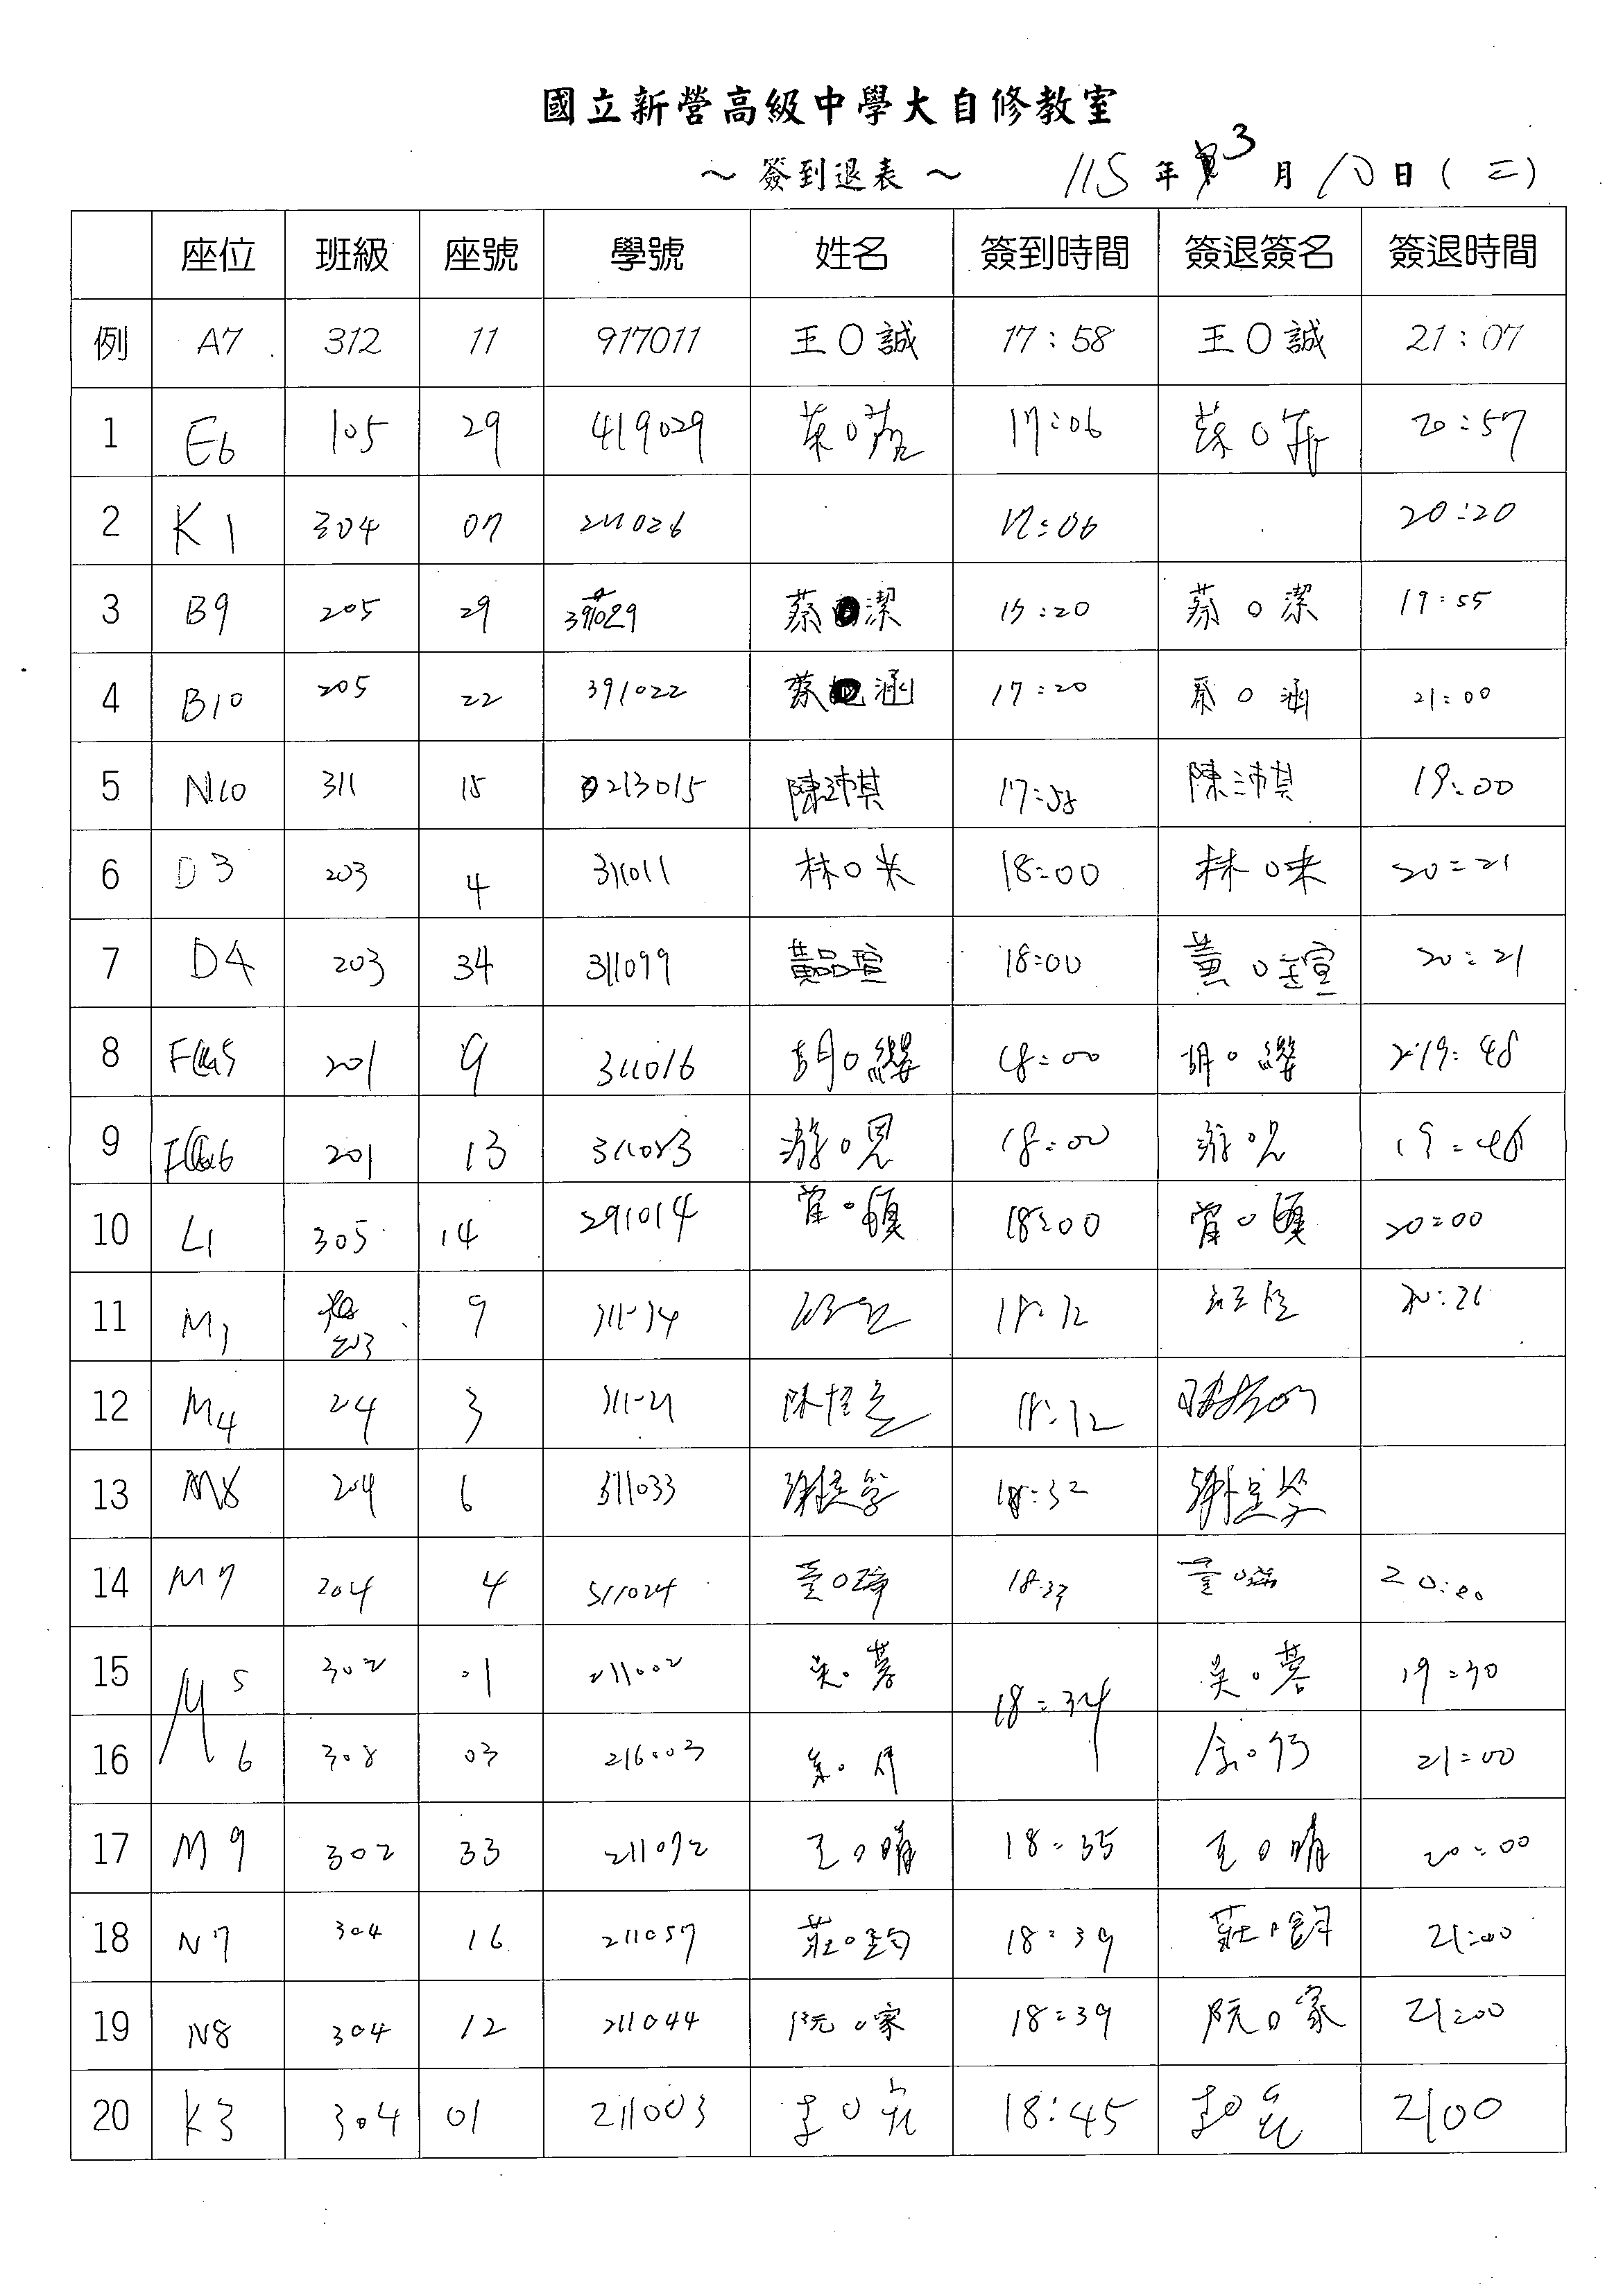 國立新營高級中學大自修教室
～ 簽到退表 ～ 115 年 3 月 10 日 ( 二 )
座位 班級 座號 學號 姓名 簽到時間 簽退簽名 簽退時間
例 A7 312 11 917011 王O誠 17:58 王O誠 21:07
1 E6 105 29 419029 17:06 20:57
2 K1 304 07 211026 17:06 20:20
3 B9 205 29 391029 蔡O潔 17:20 蔡O潔 19:55
4 B10 205 22 391022 蔡 涵 17:20 蔡O涵 21:00
5 N10 311 15 213015 陳沛棋 17:58 陳沛棋 19:00
6 D3 203 4 311011 林O 18:00 林O 20:21
7 D4 203 34 311099 黃品瑄 18:00 黃O瑄 20:21
8 F 5 201 9 311016 胡O纓 18:00 胡O纓 19:48
9 F 6 201 13 游O恩 18:00 游O恩 19:48
10 L1 305 14 291014 18:00 20:00
11 M3 203 9 18:12 20:21
12 M4 204 3 陳 18:12
13 M8 204 6 311033 謝 18:32 謝
14 M7 204 4 311024 童O 18:33 童O 20:00
15 M5 302 01 211002 吳O蓉 18:34 吳O蓉 19:30
16 6 308 03 216003 21:00
17 M9 302 33 211092 王O晴 18:35 王O晴 20:00
18 N7 304 16 211057 莊O鈞 18:39 莊O 21:00
19 N8 304 12 211044 阮O家 18:39 阮O家 21:00
20 K3 304 01 211003 18:45 2100